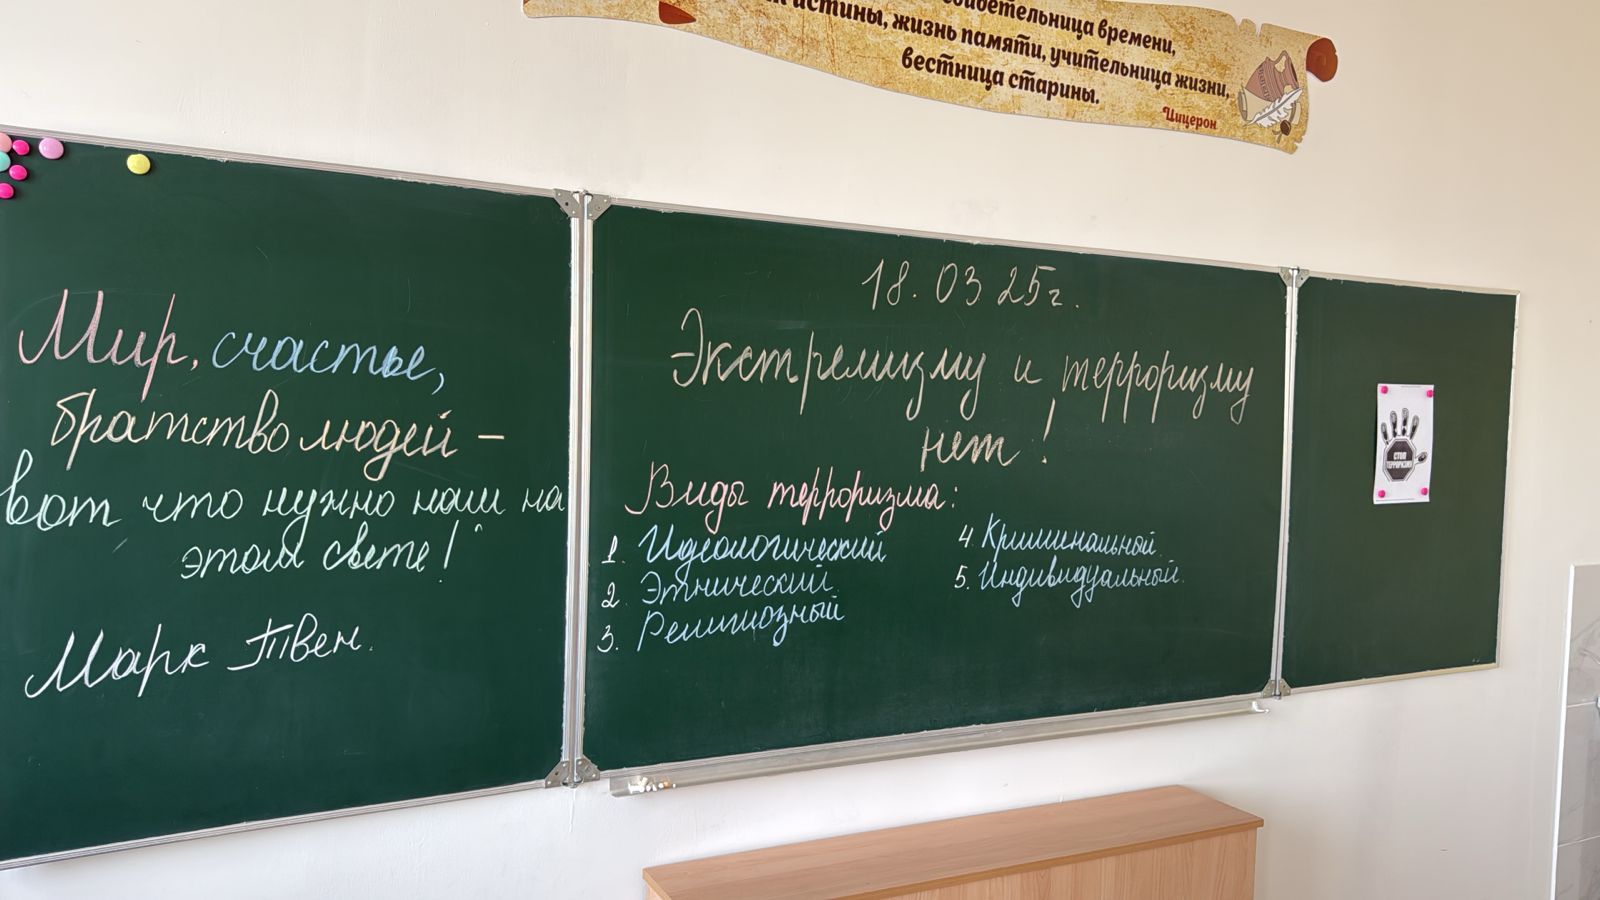 времени,
истины, жизнь памяти, учительница жизни,
вестница старины.
Цицерон
Мир, счастье,
братство людей –
вот что нужно нам на
этом свете!
Марк Твен.
18.03 25г.
Экстремизму и терроризму
нет!
Виды терроризма:
1. Идеологический
2. Этнический
3. Религиозный
4 Криминальный
5. Индивидуальный
СТОП
ТЕРРОРИЗМ